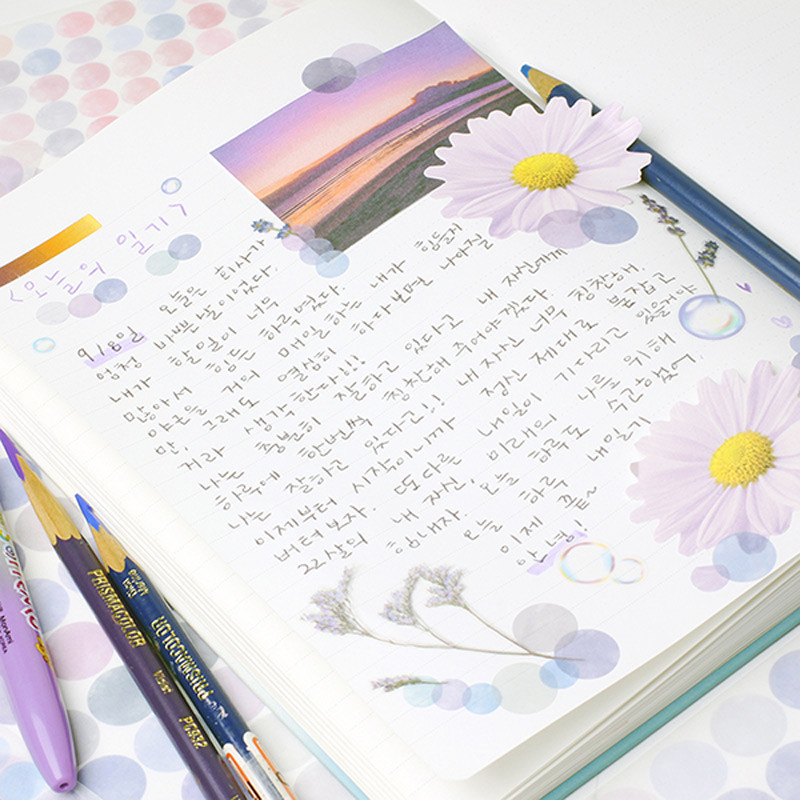 <오늘의 일기>
9/8일 오늘은 회사가
엄청 바쁜날이었다.
내가 할일이 너무
많아서 힘든 하루였다.
야근을 거의 매일하는 내가 힘들지
만, 그래도 열심히 하다보면 나아질
거라 생각한다!!!
나는 충분히 잘하고 있다고 내 자신에게
하루에 한번씩 칭찬해 주어야겠다.
나는 잘하고 있다고!! 내 자신 너무 칭찬해.
이제부터 시작이니까 정신 제대로 붙잡고
버텨보자. 또다른 내일이 기다리고 있을거야
22살의 내 자신, 미래의 나를 위해
힘내자. 오늘 하루도 수고하셨어.
오늘 하루 내일기
이제 끝~
안녕!
PRISMACOLOR Violet PC932
PRISMACOLOR
MonAmi